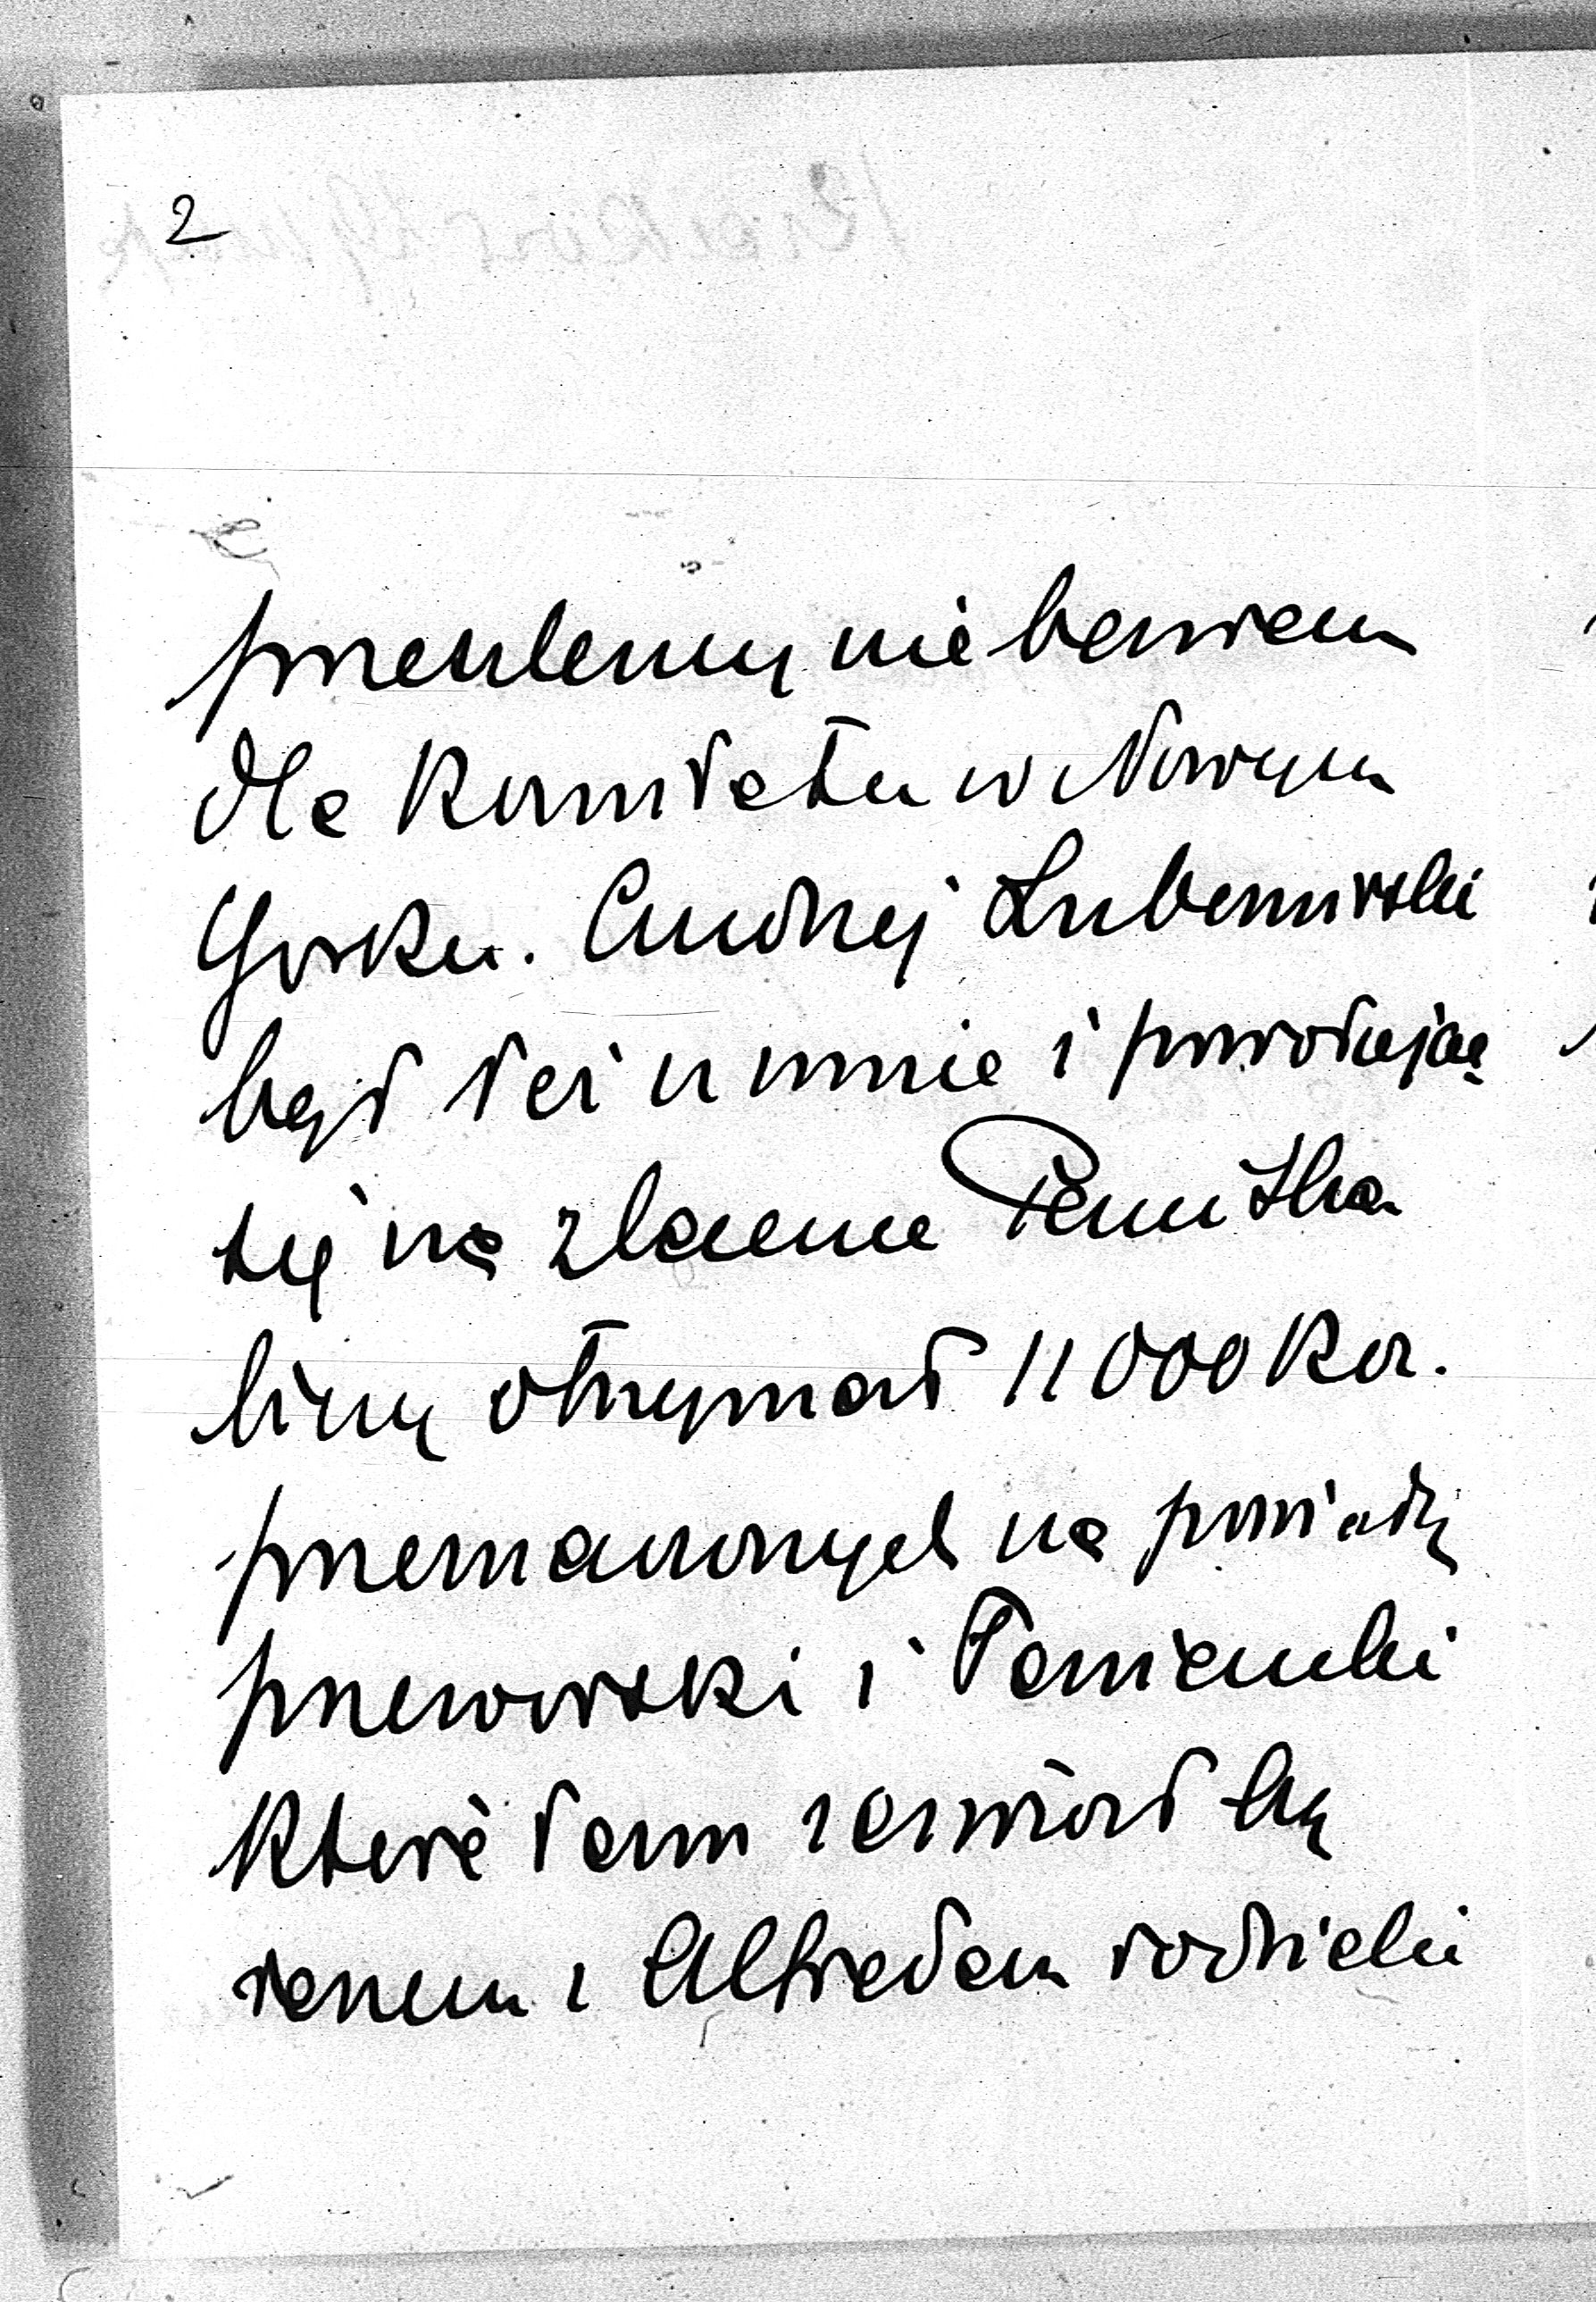 2
prześlemy niebawem
dla Komitetu w Nowym
Yorku. Andrzej Lubomirski
był też u mnie i powołując
się na zlecenie Pani Ska
biny otrzymał 11000 Kor.
przeznaczonych na powiaty
przeworski i łańcucki
które tam zaśród hr
z Alfredem rozdzieli